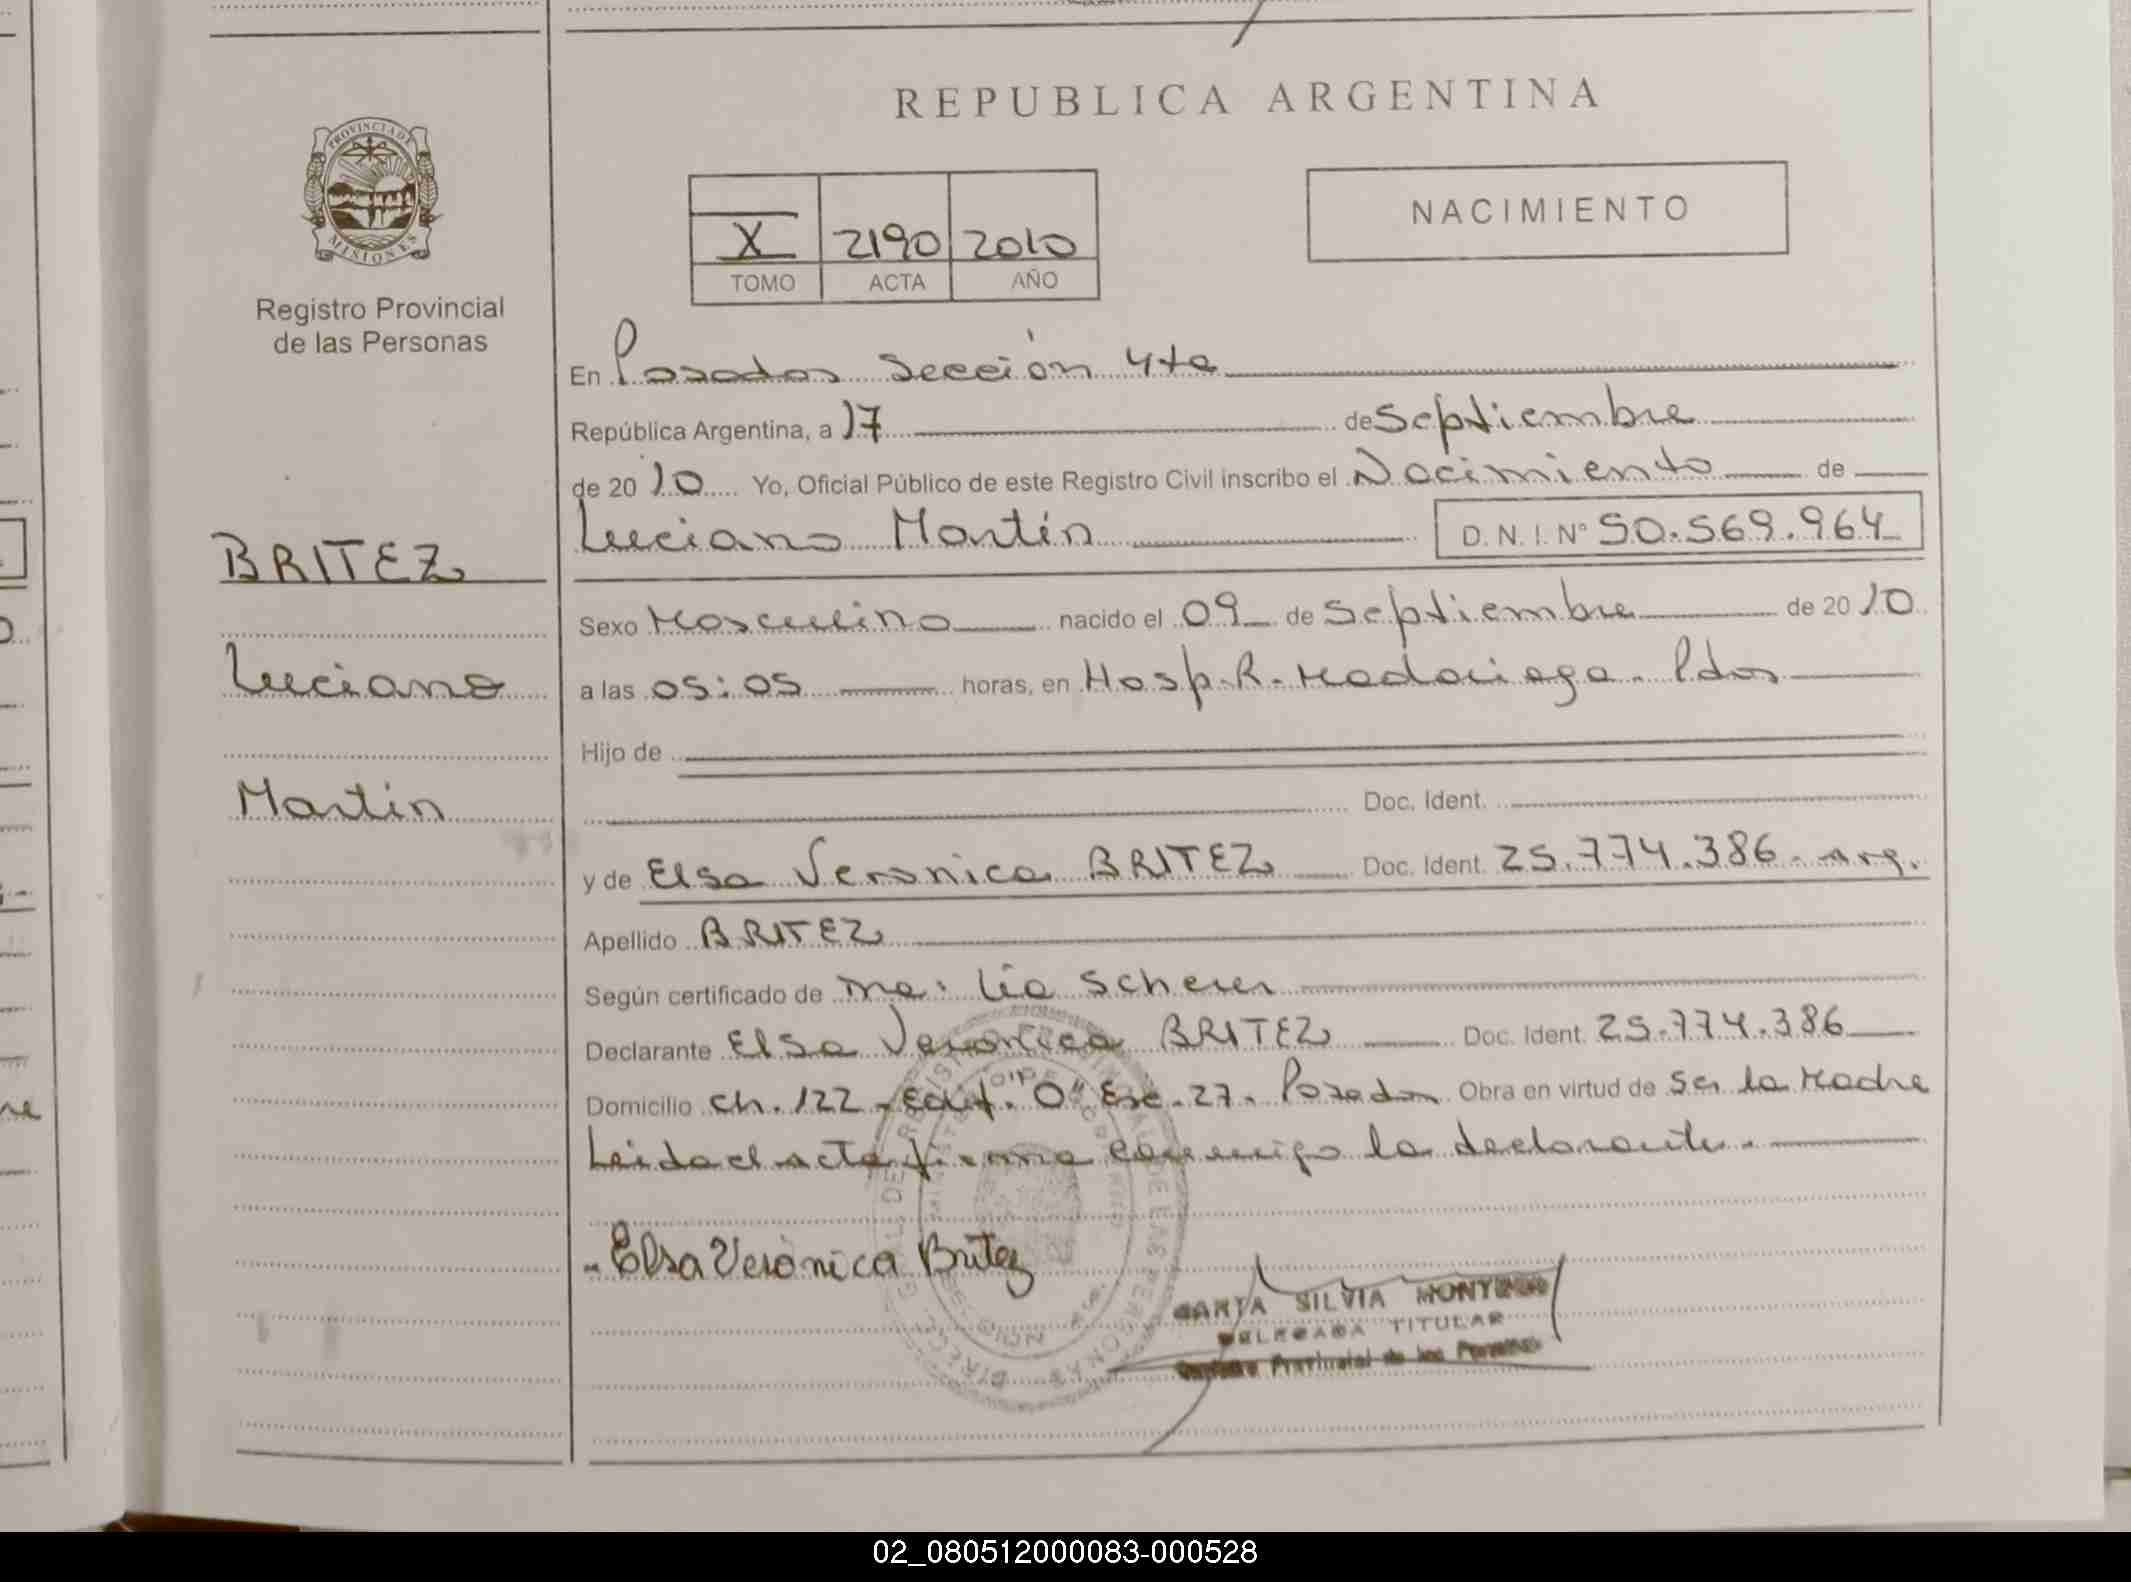 REPUBLICA ARGENTINA
PROVINCIA DE
MISIONES
Registro Provincial
de las Personas
X 2190 2010
TOMO ACTA AÑO
NACIMIENTO
En Posadas Sección 4ta
República Argentina, a 17 de Septiembre
de 20 10 Yo, Oficial Público de este Registro Civil inscribo el Nacimiento de
Luciano Martín D.N.I. N° 50.569.964
BRITEZ
Luciano
Martín
Sexo Masculino nacido el 09 de Septiembre de 20 10
a las 05:05 horas, en Hosp. R. Madariaga. Pdas
Hijo de
Doc. Ident.
y de Elsa Veronica BRITEZ Doc. Ident. 25.774.386. Arg.
Apellido BRITEZ
Según certificado de ma. Lía Scherer
Declarante Elsa Veronica BRITEZ Doc. Ident. 25.774.386
Domicilio Ch. 122 - Edif. "O" Esc. 27. Posadas Obra en virtud de Ser la Madre
Leida el acta firma conmigo la declarante.
- Elsa Verónica Britez
SILVIA
DELEGADA TITULAR
Provincial de las Personas
02_080512000083-000528